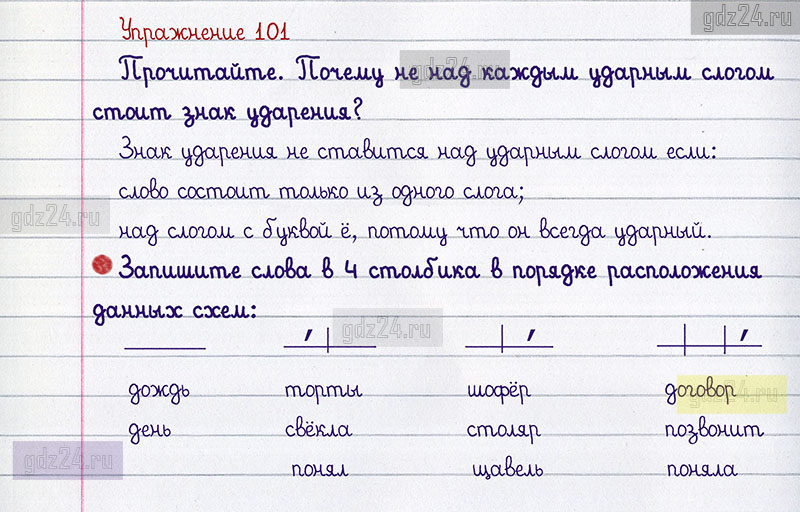 gdz24.ru
Упражнение 101
Прочитайте. Почему не над каждым ударным слогом
gdz24.ru
стоит знак ударения?
Знак ударения не ставится над ударным слогом если:
слово состоит только из одного слога;
gdz24.ru
над слогом с буквой ё, потому что он всегда ударный.
Запишите слова в 4 столбика в порядке расположения
данных схем:
gdz24.ru
дождь торты шофёр договор
gdz24.ru
день свёкла столяр позвонит
gdz24.ru
понял щавель поняла